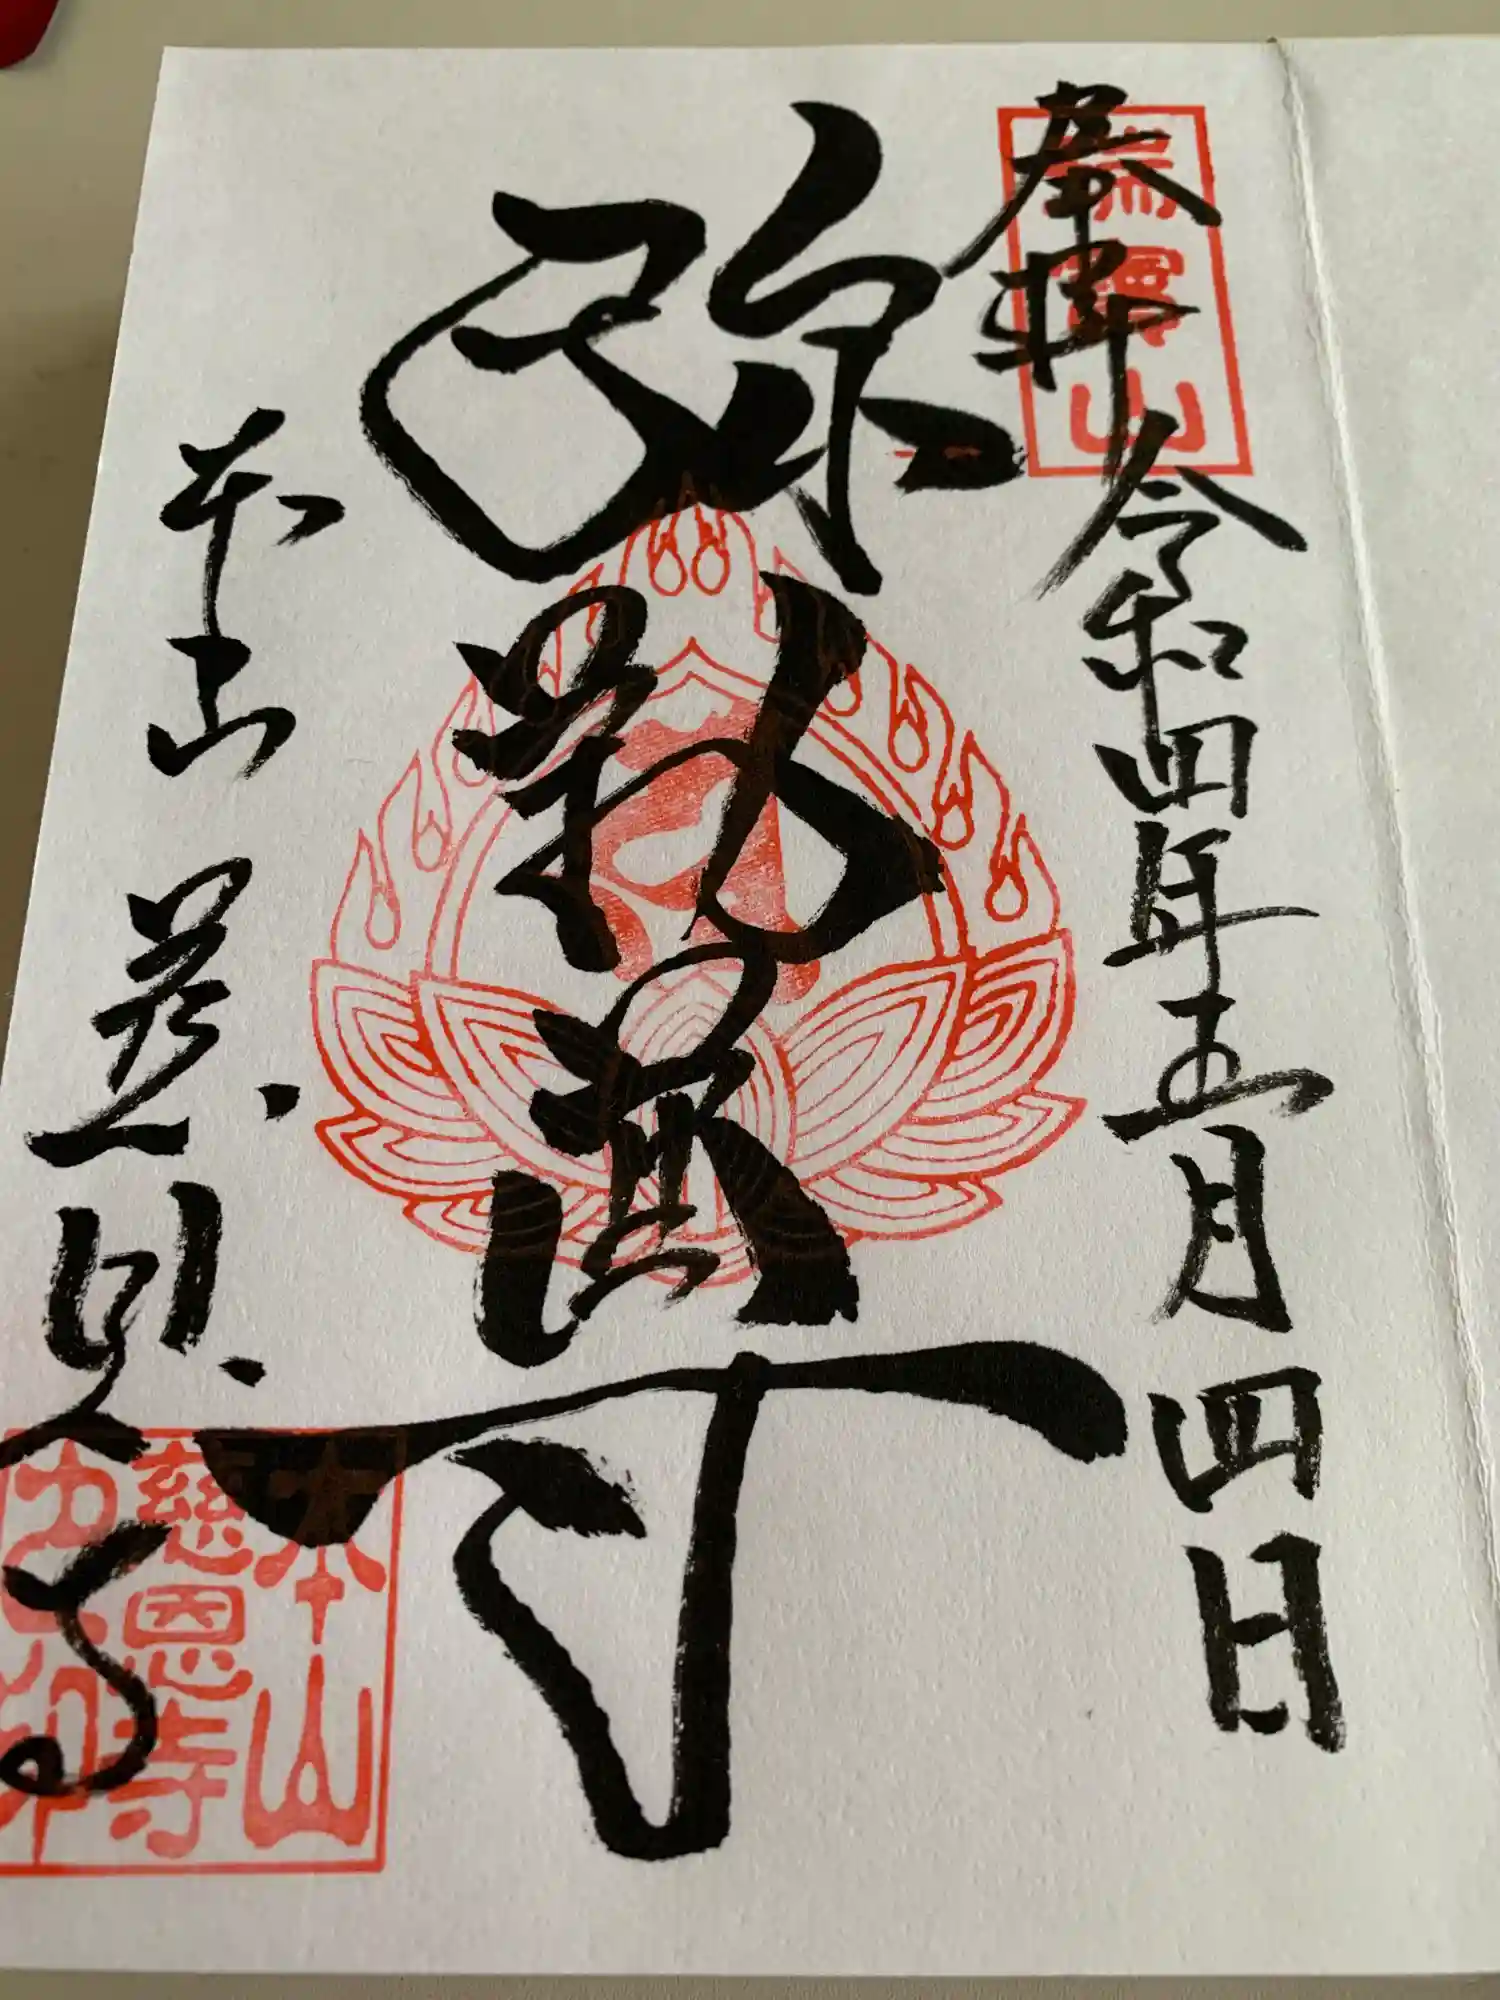 奉拝 令和四年五月四日
瑞寶山
弥勒尊
本山 慈恩寺
本山
慈恩寺
之印